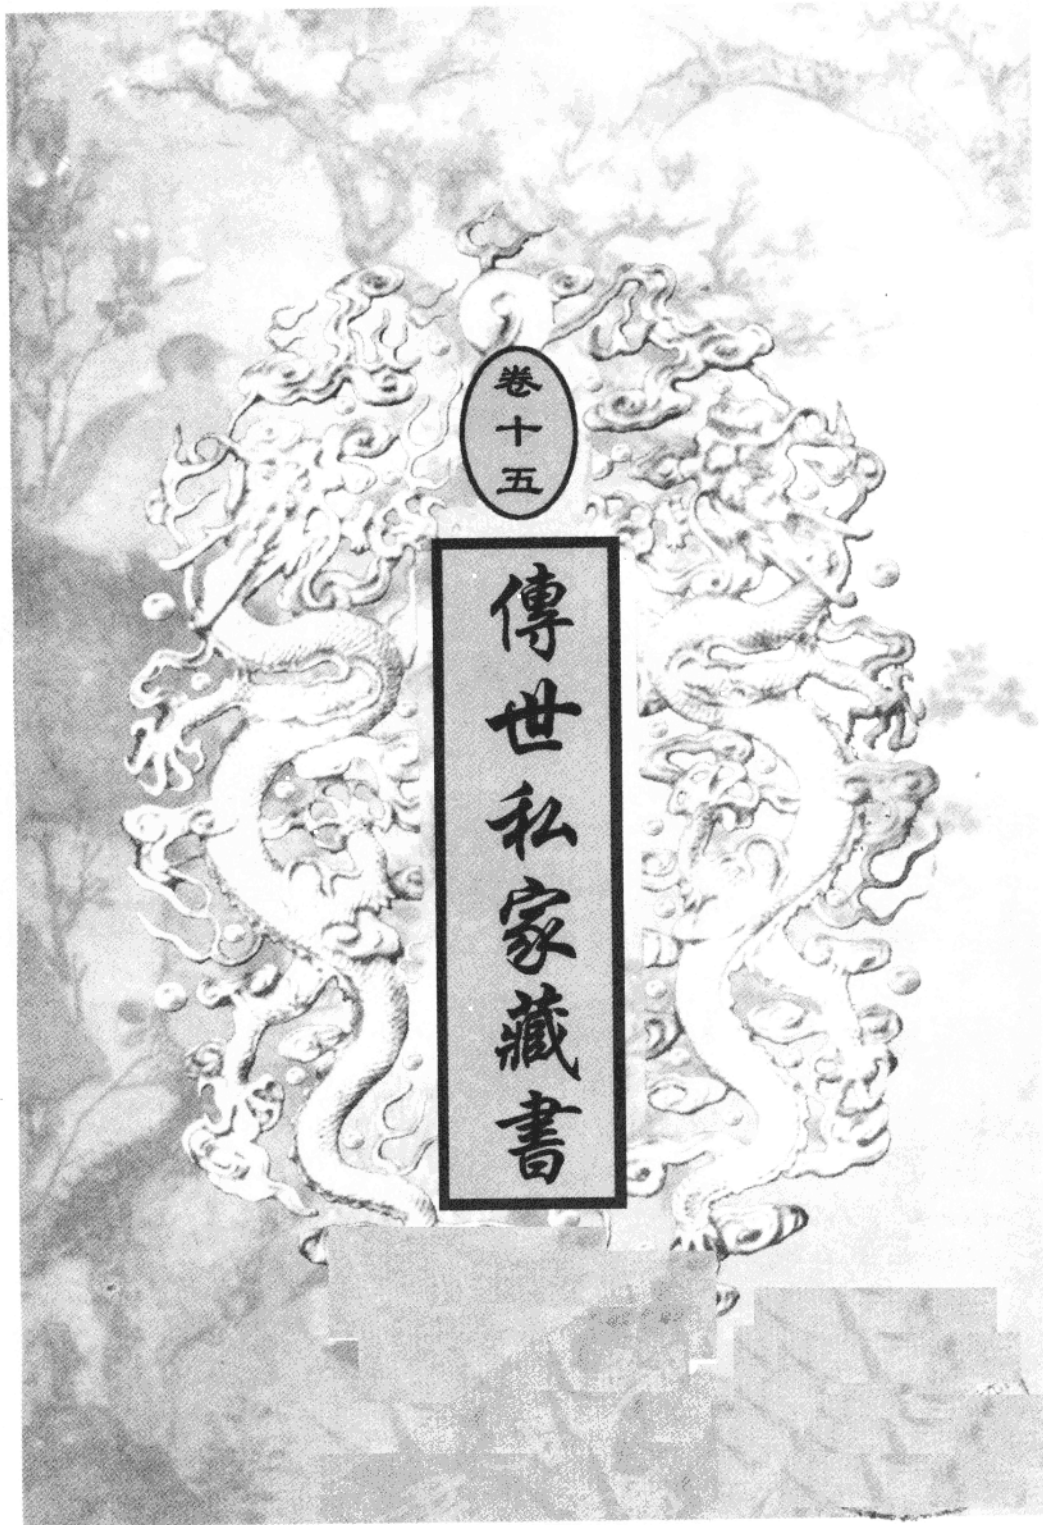 卷十五
傳世私家藏書